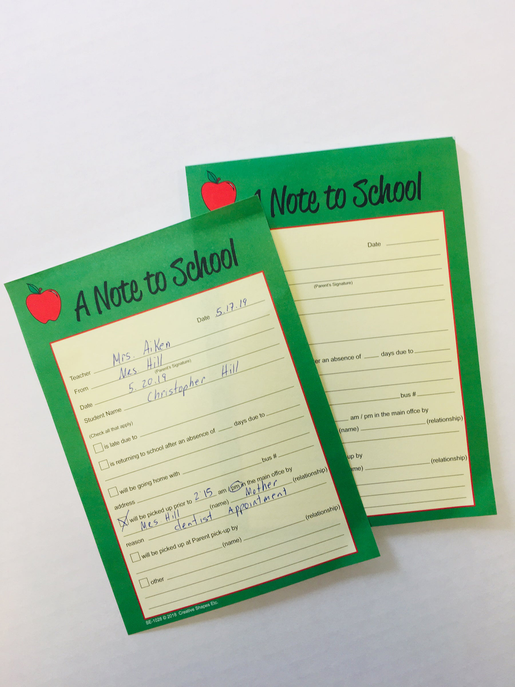 A Note to School
Date 5.17.19
Teacher Mrs Aiken
From Nes Hill
(Parent's Signature)
Date 5.20.19
Student Name Christopher Hill
(Check all that apply)
is late due to
is returning to school after an absence of days due to
will be going home with
bus #
address
will be picked up prior to 2 15 am / pm in the main office by
Nes Hill (name) Mother (relationship)
reason dentist Appointment
will be picked up at Parent pick-up by
(name) (relationship)
other
© 2016 Creative Shapes Etc.
A Note to School
Date
(Parent's Signature)
er an absence of days due to
bus #
am / pm in the main offce by
(name) (relationship)
up by
(name) (relationship)